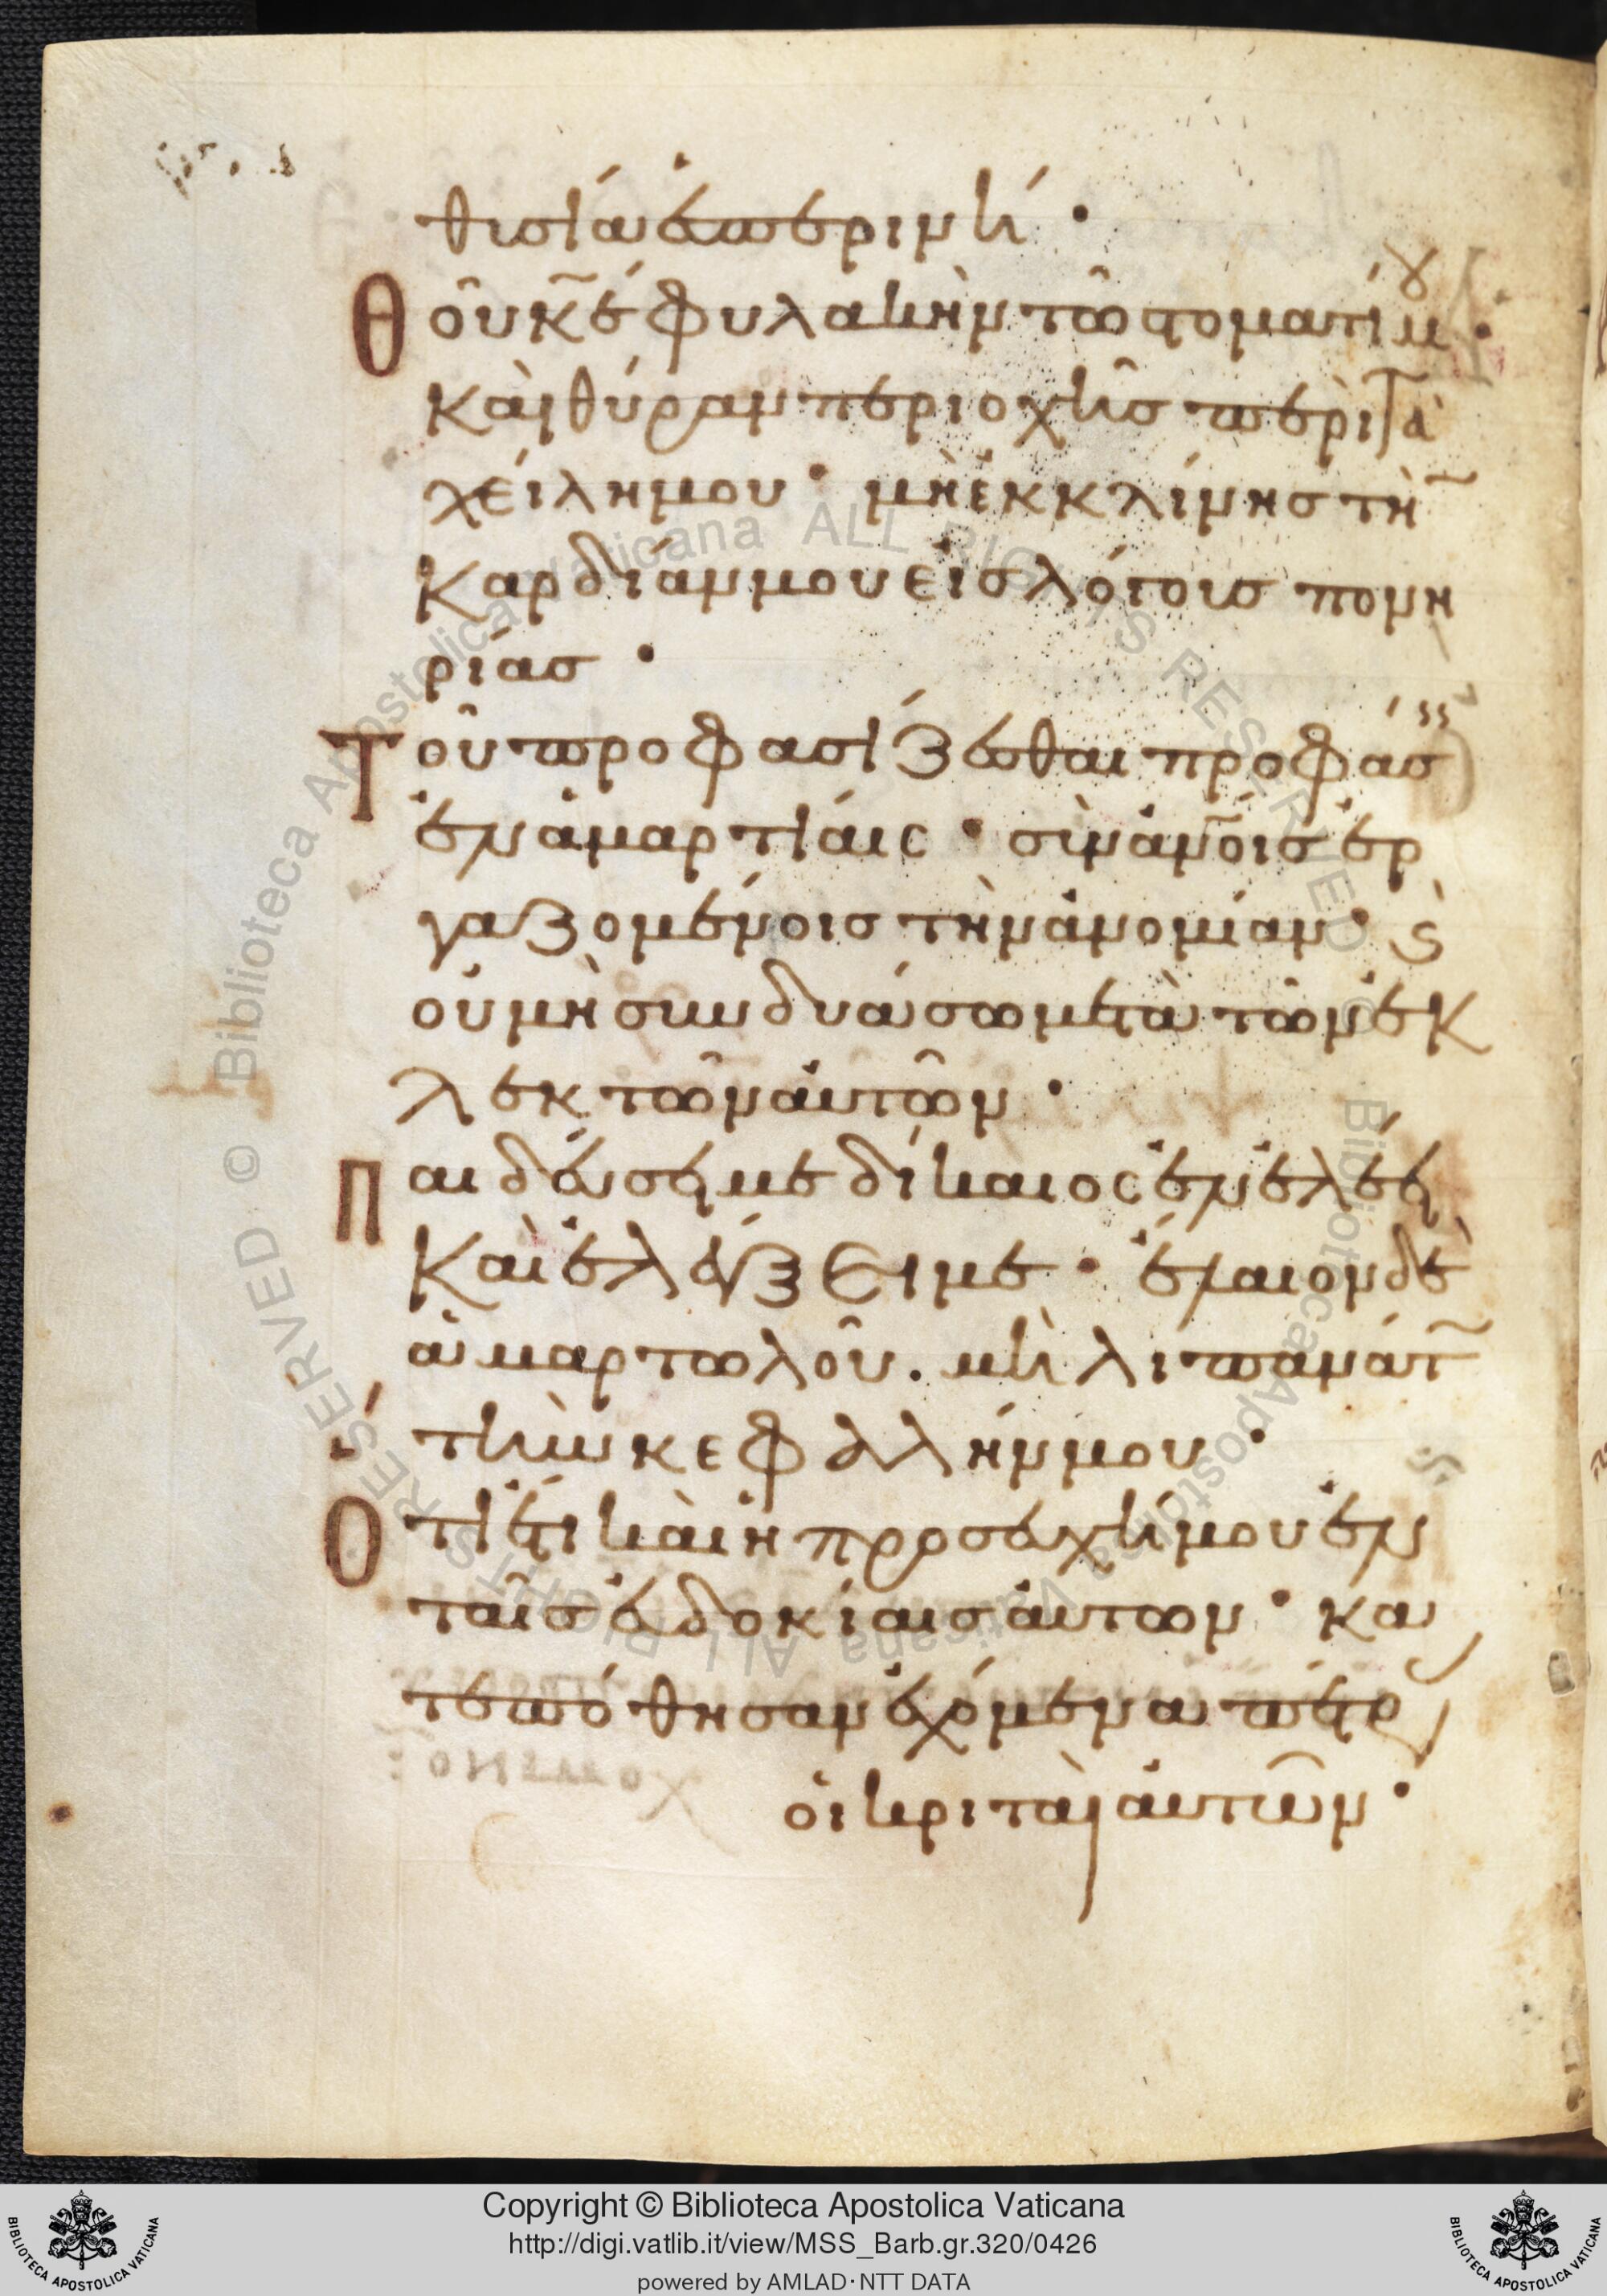 θυσία ἑσπερινή ·
Θοῦ κε φυλακὴν τῶ στόματί μου ·
καὶ θύραν περιοχῆς περὶ τὰ
χείλη μου · μὴ ἐκκλίνης τὴν
καρδίαν μου εἰς λόγους πονη
ρίας ·
Τοῦ προφασίζεσθαι προφάσεις
ἐν ἁμαρτίαις · σὺν ἀνοις ἐρ
γαζομένοις τὴν ἀνομίαν · καὶ
οὐ μὴ συνδυάσω μετὰ τῶν ἐκ
λεκτῶν αὐτῶν ·
Παιδεύσει με δίκαιος ἐν ἐλέει
καὶ ἐλέγξει με · ἔλαιον δὲ
ἁμαρτωλοῦ . μὴ λιπανάτω
τὴν κεφαλήν μου ·
Ὅτι ἔτι καὶ ἡ προσευχή μου ἐν
ταῖς εὐδοκίαις αὐτῶν · κα
τεπόθησαν ἐχόμενα πέτρ
οἱ κριταὶ αὐτῶν ·
© Biblioteca Apostolica Vaticana ALL RIGHTS RESERVED
© Biblioteca Apostolica Vaticana ALL RIGHTS RESERVED
Copyright © Biblioteca Apostolica Vaticana
http://digi.vatlib.it/view/MSS_Barb.gr.320/0426
powered by AMLAD·NTT DATA
BIBLIOTECA APOSTOLICA VATICANA
BIBLIOTECA APOSTOLICA VATICANA